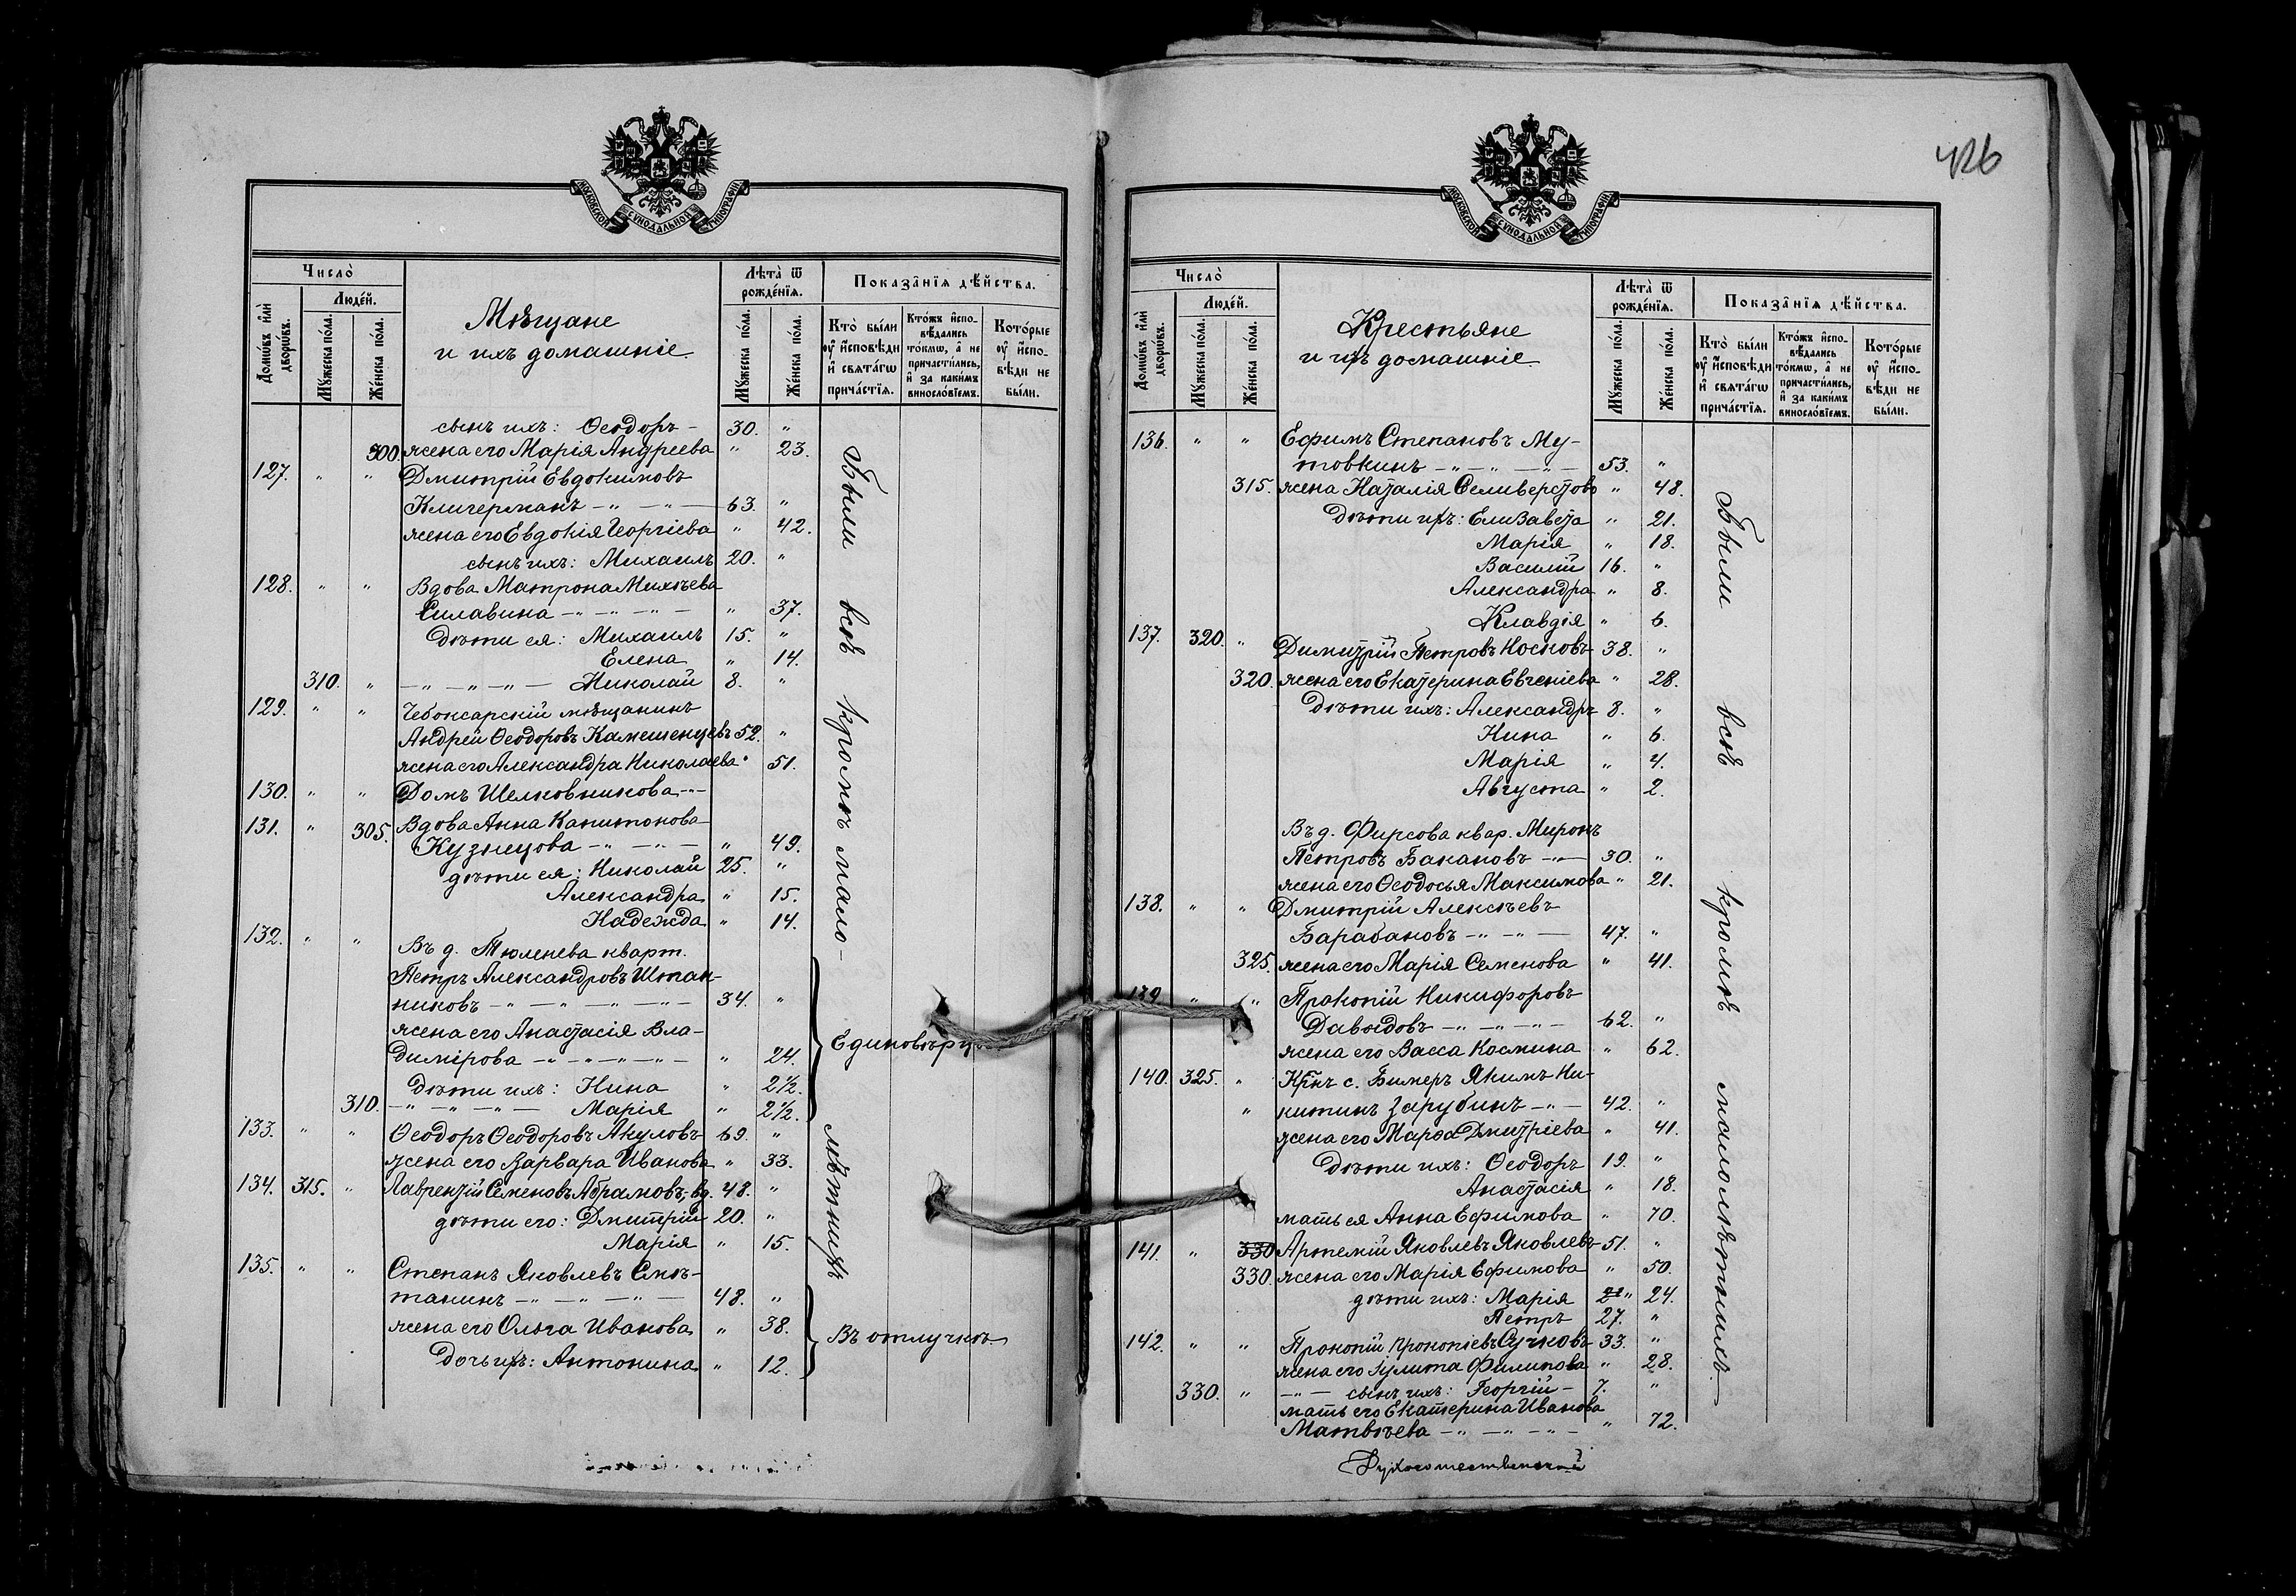 МОСКОВСКОЙ СѴНОДАЛЬНОЙ ТИПОГРАФІИ
Число̀
Людéй.
Домѡ́въ и҆лѝ дворѡ́въ.
Мꙋ́жеска по́ла.
Же́нска по́ла.
Мѣщане
и ихъ домашніе.
Лѣта̀ ѿ рожде́нїѧ.
Мꙋ́жеска по́ла.
Же́нска по́ла.
Показа̑нїѧ дѣ́йства.
Кто̀ бы́ли
оу҆ и҆сповѣ́ди
и҆ свѧта́гѡ
прича́стїѧ.
Кто́жъ и҆спо-
вѣ́дались
то́кмѡ, а҆ не
причасти́лись,
и҆ за каки́мъ
винослóвїемъ.
Кото́рые
оу҆ и҆спо-
вѣ́ди не
бы́ли.
сынъ ихъ: Ѳеодоръ - 30. "
300 жена его Марія Андреева " 23.
127. " " Дмитрій Евдокимовъ
Клигерманъ - " - " - 63. "
жена его Евдокія Георгіева " 42.
сынъ ихъ: Михаилъ 20. "
128. " " Вдова Матрона Михѣева
Силавина - " - " - " - " 37.
дѣти ея: Михаилъ 15. "
Елена " 14.
310. " - " - " - " - Николай 8. "
129. " " Чебоксарскій мѣщанинъ
Андрей Ѳеодоровъ Камешенцевъ 52. "
жена его Александра Николаева " 51.
130. " " Домъ Шелковникова - " -
131. " 305. Вдова Анна Капитонова
Кузнецова - " - " - " 49.
дѣти ея: Николай 25. "
Александра " 15.
Надежда " 14.
132. " " Въ д. Тюленева кварт.
Петръ Александровъ Штан-
никовъ - " - " - " - " - 34. "
жена его Анастасія Вла-
димірова - " - " - " - " - " 24.
Единовѣрцы
дѣти ихъ: Нина " 2½.
310. - " - " - " - Марія " 2½.
133. " " Ѳеодоръ Ѳеодоровъ Акуловъ 69. "
жена его Варвара Иванова " 33.
134. 315. " Лаврентій Семеновъ Абрамовъ, вд. 48. "
дѣти его: Дмитрій 20. "
Марія " 15.
135. " " Степанъ Яковлевъ Смѣ-
танинъ - " - " - " - 48. "
жена его Ольга Иванова " 38.
Въ отлучкѣ
дочь ихъ: Антонина " 12.
Были всѣ кромѣ мало-
лѣтнихъ
426
МОСКОВСКОЙ СѴНОДАЛЬНОЙ ТИПОГРАФІИ
Число̀
Людéй.
Домѡ́въ и҆лѝ дворѡ́въ.
Мꙋ́жеска по́ла.
Же́нска по́ла.
Крестьяне
и ихъ домашніе.
Лѣта̀ ѿ рожде́нїѧ.
Мꙋ́жеска по́ла.
Же́нска по́ла.
Показа̑нїѧ дѣ́йства.
Кто̀ бы́ли
оу҆ и҆сповѣ́ди
и҆ свѧта́гѡ
прича́стїѧ.
Кто́жъ и҆спо-
вѣ́дались
то́кмѡ, а҆ не
причасти́лись,
и҆ за каки́мъ
винослóвїемъ.
Кото́рые
оу҆ и҆спо-
вѣ́ди не
бы́ли.
136. " " Ефимъ Степановъ Му-
товкинъ - " - " - " - 53. "
315. жена Наталія Селиверстова " 48.
дѣти ихъ: Елизавета " 21.
Марія " 18.
Василій 16. "
Александра " 8.
Клавдія " 6.
137. 320. " Димитрій Петровъ Носковъ 38. "
320. жена его Екатерина Евгеніева " 28.
дѣти ихъ: Александръ 8. "
Нина " 6.
Марія " 4.
Августа " 2.
Въ д. Фирсова квар. Миронъ
Петровъ Бакановъ - " - 30. "
жена его Ѳеодосья Максимова " 21.
138. " " Дмитрій Алексѣевъ
Барабановъ - " - " - 47. "
325. жена его Марія Семенова " 41.
139. " " Прокопій Никифоровъ
Давыдовъ - " - " - " - 62. "
жена его Васса Космина " 62.
140. 325. " Крнъ с. Бимеръ Якимъ Ни-
" китинъ Зарубинъ - " - 42. "
жена его Марѳа Дмитріева " 41.
дѣти ихъ: Ѳеодоръ 19. "
Анастасія " 18.
мать ея Анна Ефимова " 70.
141. " 330 Артемій Яковлевъ Яковлевъ 51. "
330. жена его Марія Ефимова " 50.
дѣти ихъ: Марія " 24.
Петръ 27. "
142. " " Прокопій Прокопіевъ Сучковъ 33. "
жена его Іулита Филипова " 28.
330. " - " - сынъ ихъ: Георгій - 7. "
мать его Екатерина Иванова
Матвѣева - " - " - " - " 72.
Были всѣ кромѣ малолѣтнихъ
Духосошественской